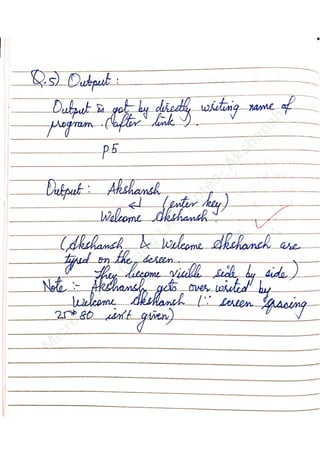 Q.5) Output :
Output is got by directly writing name of
program. (after link).
P5
Output : Akshansh
↵ (enter key)
Welcome Akshansh
(Akshansh & Welcome Akshansh are
typed on the screen.
They become visible side by side)
Note :- Akshansh gets over writed by
Welcome Akshansh (∵ screen spacing
25*80 isn't given)